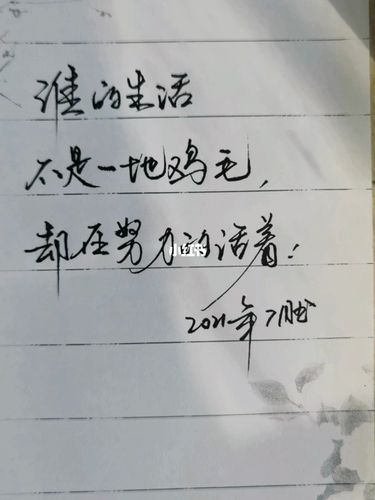 谁的生活
不是一地鸡毛，
却在努力的活着！
小红书
2021年7月